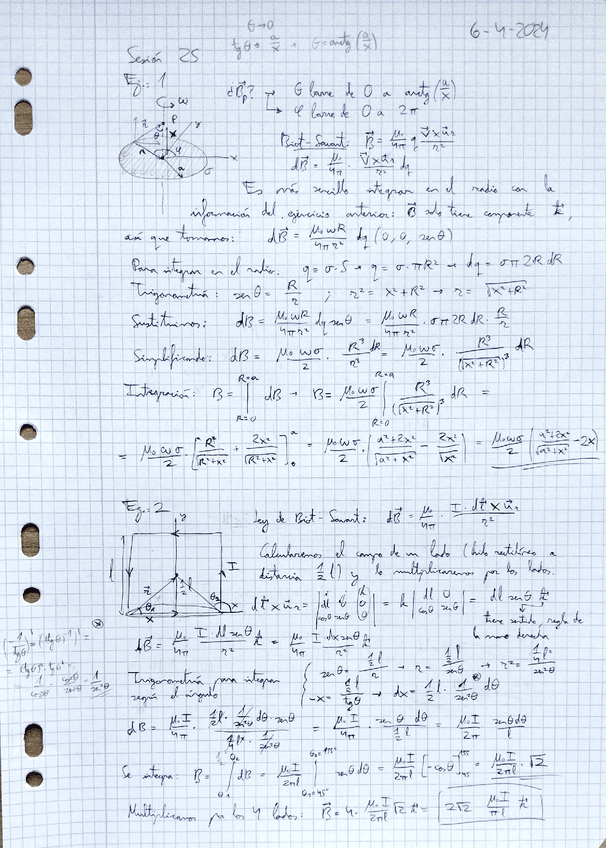 θ→0
tgθ = a/x → θ = arctg(a/x)
6-4-2024
Sesión 25
Ej.: 1
¿B⃗p? → θ barre de 0 a arctg(a/x)
↳ φ barre de 0 a 2π
Biot-Savart: B⃗ = μ₀/4π q v⃗×u⃗r/r²
dB⃗ = μ₀/4π · v⃗×u⃗r/r² dq
Es más sencillo integrar en el radio con la
información del ejercicio anterior: B⃗ solo tiene componente k⃗,
así que tomamos: dB⃗ = μ₀ωR/4πr² dq (0,0, senθ)
Para integrar en el radio: q=σ·S → q=σ·πR² → dq=σπ2R dR
Trigonometría: senθ = R/r ; r²=x²+R² → r=√(x²+R²)
Sustituimos: dB = μ₀ωR/4πr² dq senθ = μ₀ωR/4πr² · σπ2R dR · R/r
Simplificando: dB = μ₀ωσ/2 · R³/r³ dR = μ₀ωσ/2 · R³/(√(x²+R²))³ dR
Integración: B = ∫_{R=0}^{R=a} dB → B = μ₀ωσ/2 ∫_{R=0}^{R=a} R³/(√(x²+R²))³ dR =
= μ₀ωσ/2 · [R²/√(R²+x²) + 2x²/√(R²+x²)]₀ᵃ = μ₀ωσ/2 · (a²+2x²/√(a²+x²) − 2x²/√x²) = μ₀ωσ/2 (a²+2x²/√(a²+x²) − 2x)
Ej.: 2
Ley de Biot-Savart: dB⃗ = μ₀/4π · I·dl⃗×u⃗r/r²
Calcularemos el campo de un lado (hilo rectilíneo a
distancia ½l) y lo multiplicaremos por los lados.
dl⃗×u⃗r = |dl 0 0; cosθ senθ 0| = k |dl 0; cosθ senθ| = dl senθ k⃗
tiene sentido, regla de
la mano derecha
dB⃗ = μ₀/4π I·dl senθ/r² k⃗ = μ₀/4π I dx senθ/r² k⃗
Trigonometría para integrar
según el ángulo
senθ = ½l/r → r = ½l/senθ → r² = ¼l²/sen²θ
−x = ½l/tgθ → dx = ½l · 1/sen²θ dθ
dB = μ₀I/4π · ½l·1/sen²θ dθ·senθ / ¼l²·1/sen²θ = μ₀I/4π · senθ dθ/½l = μ₀I/2π senθdθ/l
Se integra: B = ∫_{θ₁}^{θ₂} dB = μ₀I/2πl ∫_{θ₁=45°}^{θ₂=135°} senθ dθ = μ₀I/2πl [−cosθ]₄₅¹³⁵ = μ₀I/2πl · √2
Multiplicamos por los 4 lados: B⃗ = 4· μ₀I/2πl √2 k⃗ = 2√2 μ₀I/πl k⃗